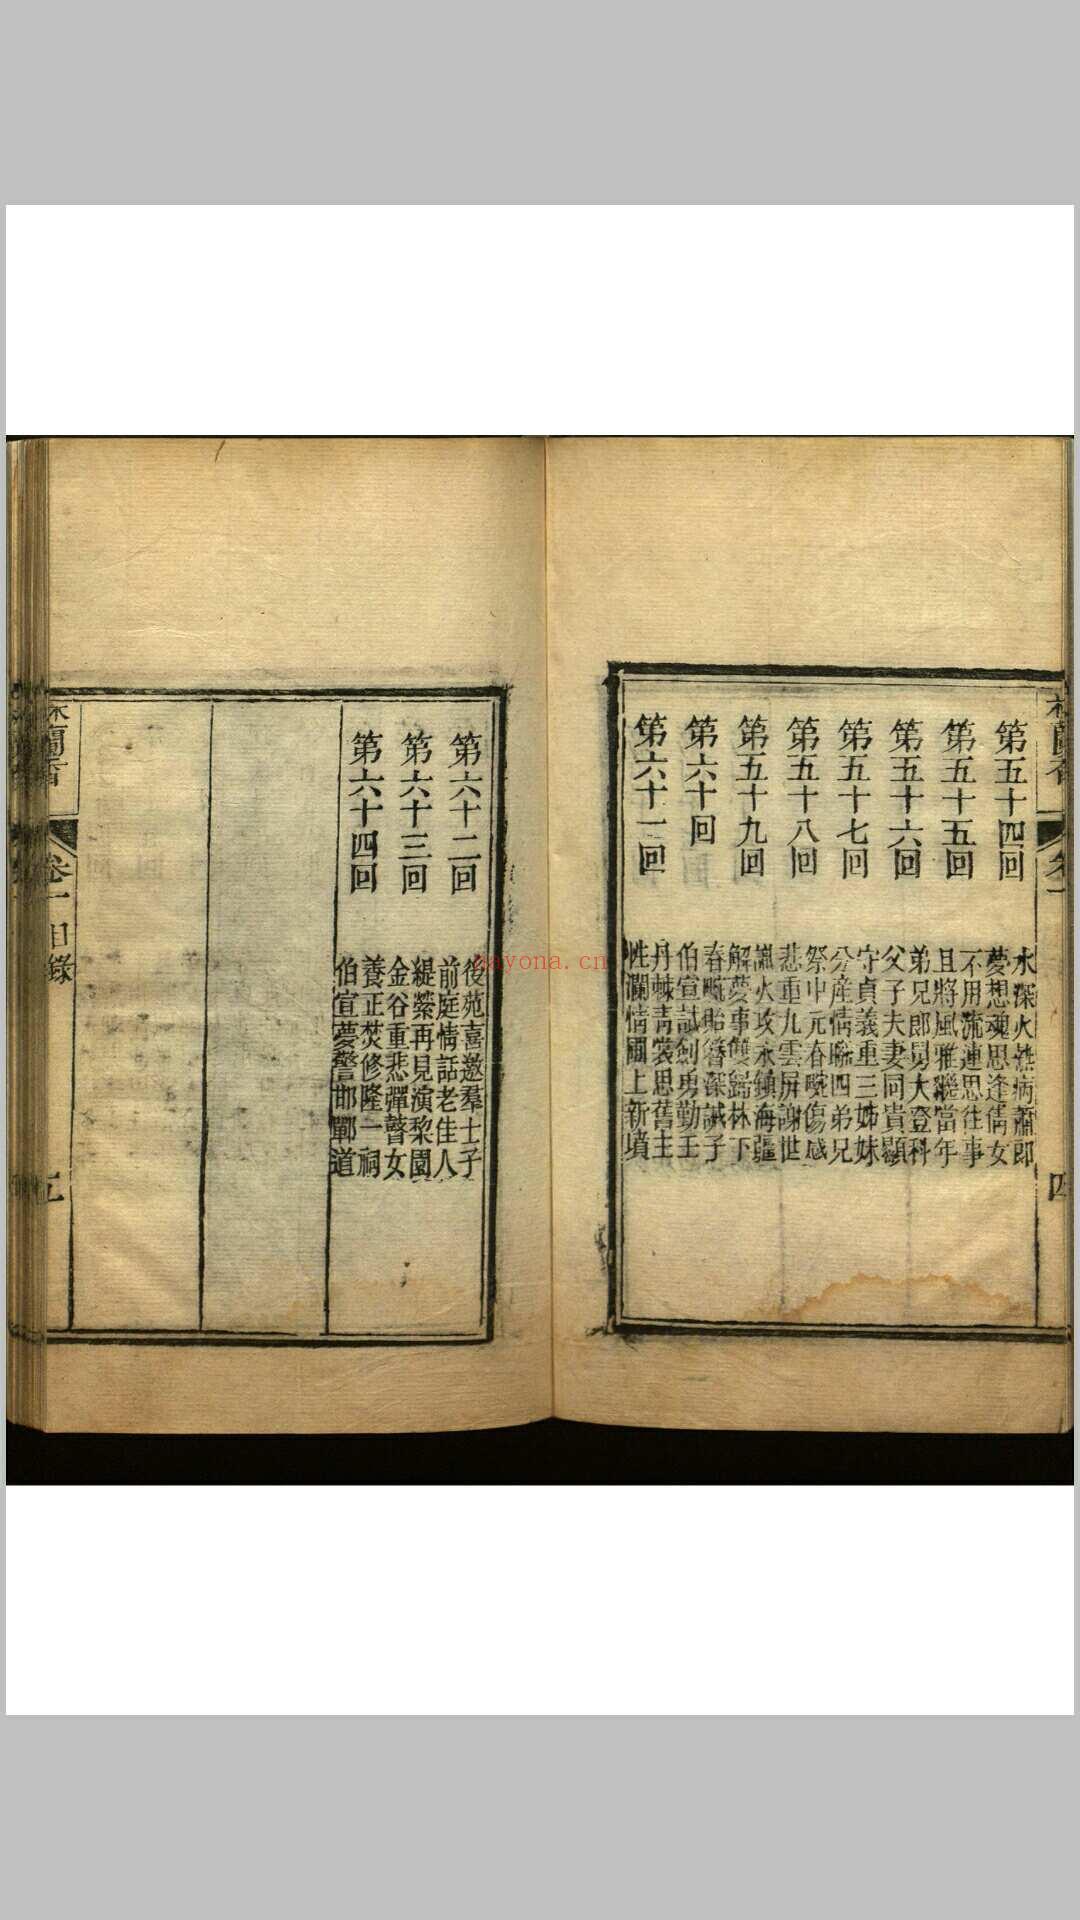 蘭香
卷一
四
第五十四回
水深火熱病蕭郎
夢想魂思逢倩女
第五十五回
不用流連思往事
且將風雅繼當年
第五十六回
弟兄郎舅大登科
父子夫妻同貴顯
第五十七回
守貞義重三姊妹
分産情聯四弟兄
第五十八回
祭中元春畹傷感
悲重九雲屏謝世
第五十九回
火攻永鎮海疆
解夢事雙歸林下
第六十回
春畹貽簪深誡子
伯宣試劍勇勤王
第六十一回
丹棘青裳思舊主
性瀾情圃上新墳
第六十二回
後苑喜邀羣士子
前庭情話老佳人
第六十三回
緹縈再見演黎園
金谷重悲彈瞽女
第六十四回
養正焚修隆一祠
伯宣夢警邯鄲道
蘭香
卷一目錄
nayona.cn